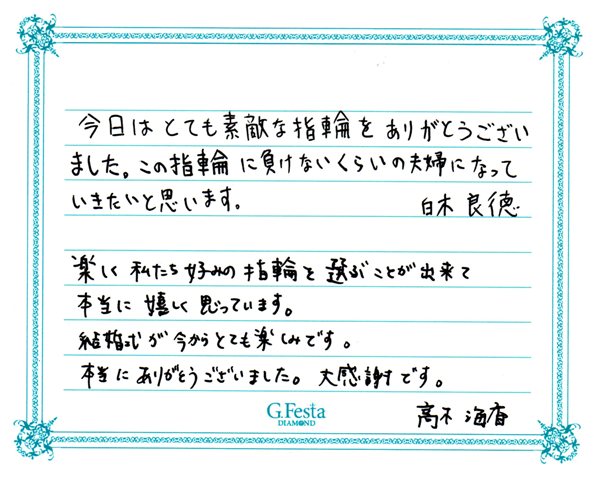 今日はとても素敵な指輪をありがとうござい
ました。この指輪に負けないくらいの夫婦になって
いきたいと思います。 白木 良徳
楽しく私たち好みの指輪を選ぶことが出来て
本当に嬉しく思っています。
結婚式が今からとても楽しみです。
本当にありがとうございました。大感謝です。
G.Festa 高木 海香
DIAMOND